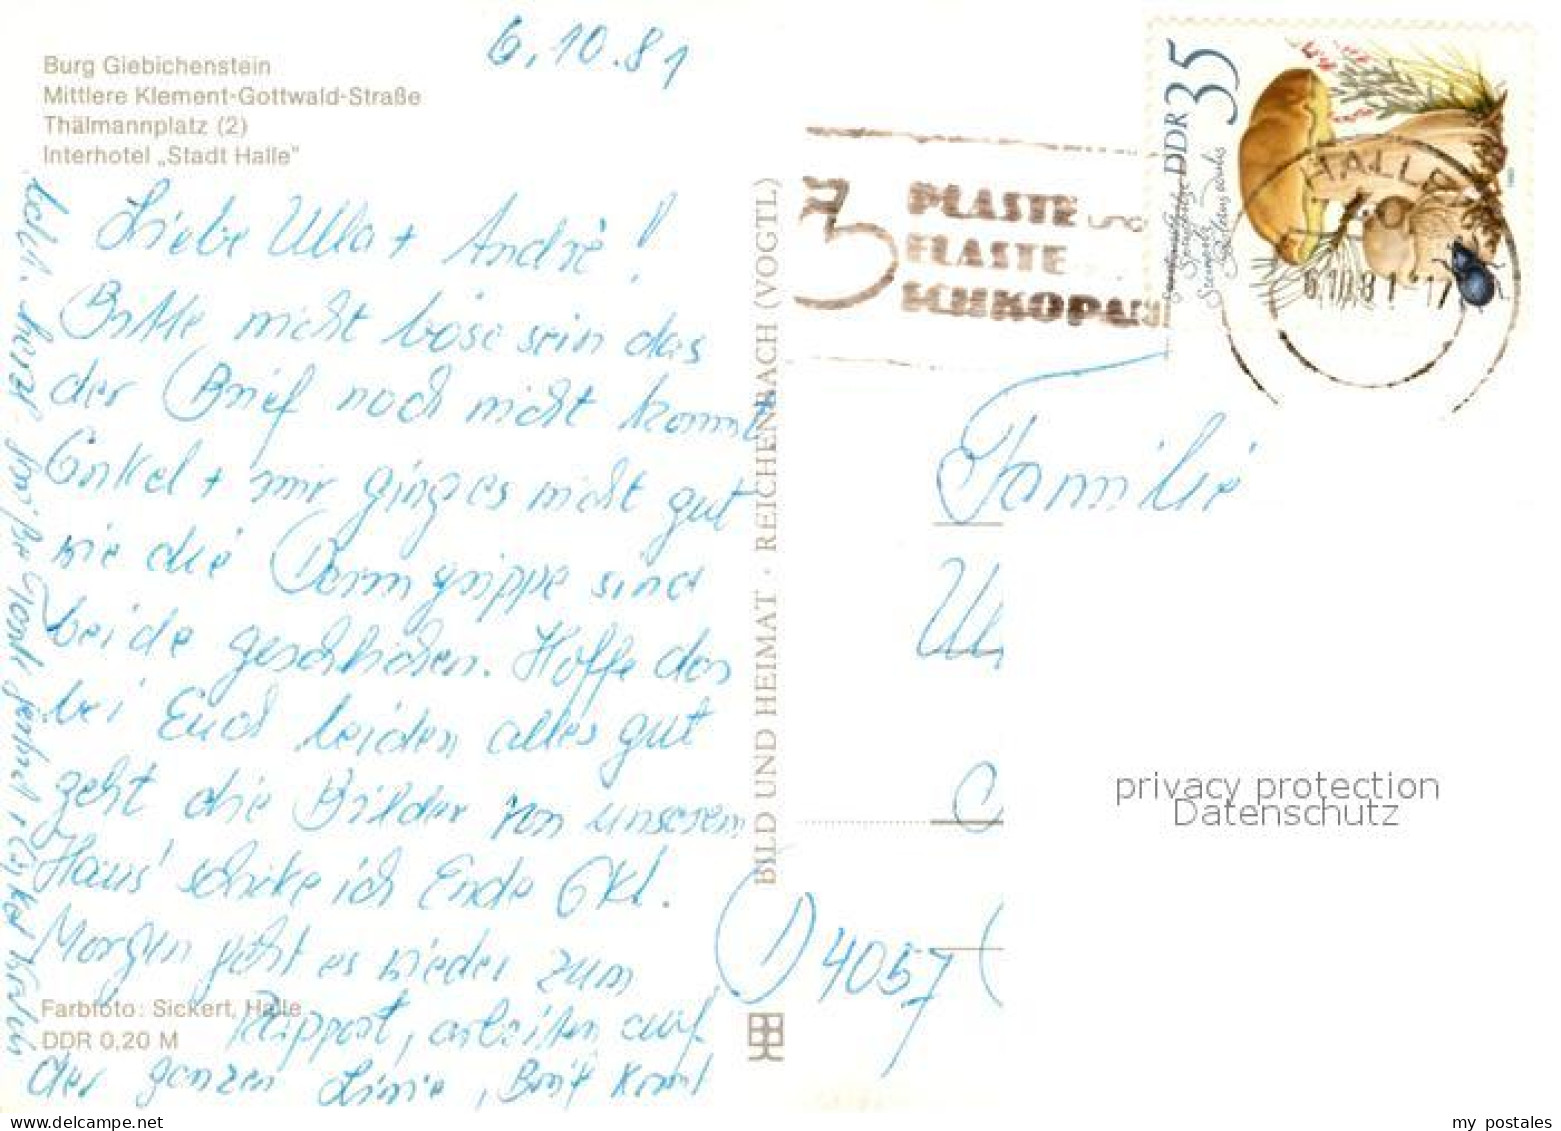 6.10.81
Burg Giebichenstein
Mittlere Klement-Gottwald-Straße
Thälmannplatz (2)
Interhotel „Stadt Halle"
Liebe Ulla + André!
Bitte nicht böse sein das
der Brief noch nicht kommt
Onkel + mir ging es nicht gut
wie die Darmgrippe sind
beide geschlichen. Hoffe das
bei Euch beiden alles gut
geht die Bilder von unserem
Haus schike ich Ende Okt.
Morgen geht es wieder zum
Rapport, arbeiten auf
der ganzen Linie, Brief komt
Farbfoto: Sickert, Halle
DDR 0,20 M
BILD UND HEIMAT · REICHENBACH (VOGTL)
DDR 35
PLASTE
ELASTE
SCHKOPAU
HALLE
6.10.81-17
Familie
D 4057
privacy protection
Datenschutz
my postales